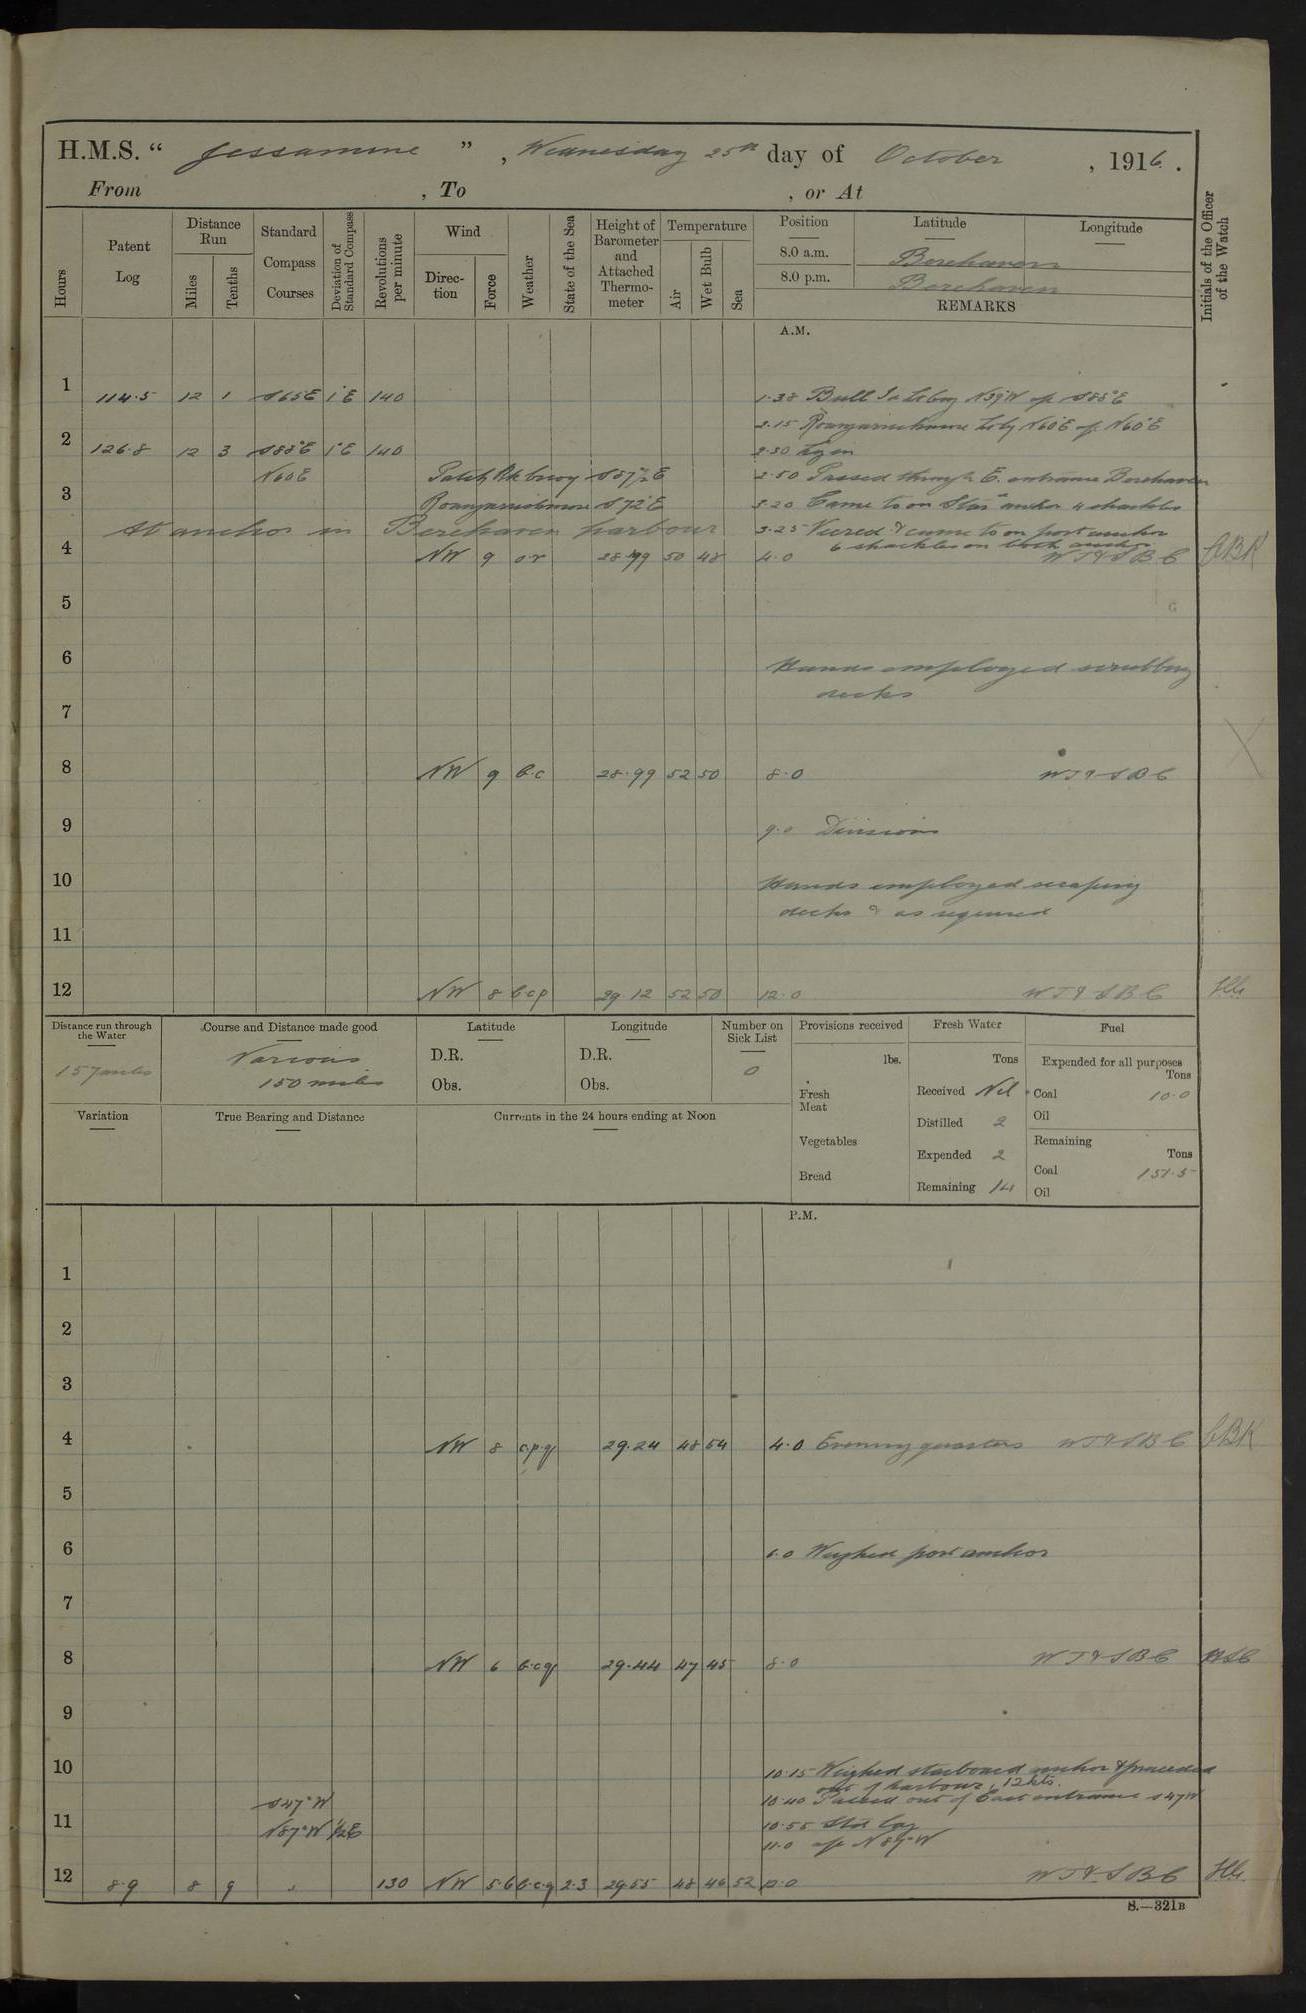 H.M.S. “ Jessamine ” , Wednesday 25th day of October , 1916 .
From , To , or At
Hours
Patent Log
Distance Run
Miles
Tenths
Standard Compass Courses
Deviation of Standard Compass
Revolutions per minute
Wind
Direction
Force
Weather
State of the Sea
Height of Barometer and Attached Thermometer
Temperature
Air
Wet Bulb
Sea
Position
Latitude
Longitude
8.0 a.m. Berehaven
8.0 p.m. Berehaven
REMARKS
Initials of the Officer of the Watch
A.M.
1 114.5 12 1 S65E 1°E 140 1.38 Bull N39W S85°E
2.15 Roancarrickmore N60°E
2 126.8 12 3 S85°E 1°E 140 2.30
N60E S57½E 2.50 Passed through E. entrance Berehaven
3 Roancarrickmore S72°E 3.20 Came to on Star anchor 4 shackles
At anchor in Berehaven harbour 3.25 Veered & came to on port anchor
6 shackles on both anchors
4 NW 9 o.r 28.99 50 48 4.0 W T & S B C
5
6 Hands employed scrubbing
decks
7
8 NW 9 b.c 28.99 52 50 8.0 W T & S B C
9 9.0 Divisions
10 Hands employed scraping
decks & as required
11
12 NW 8 b.c.p 29.12 52 50 12.0 W T & S B C
Distance run through the Water
157 miles
Course and Distance made good
Various
150 miles
Latitude
D.R.
Obs.
Longitude
D.R.
Obs.
Number on Sick List
0
Provisions received
lbs.
Fresh Meat
Vegetables
Bread
Fresh Water
Tons
Received Nil
Distilled 2
Expended 2
Remaining 14
Fuel
Expended for all purposes
Tons
Coal 10.0
Oil
Remaining
Tons
Coal 151.5
Oil
Variation
True Bearing and Distance
Currents in the 24 hours ending at Noon
P.M.
1
2
3
4 NW 8 c.p.q 29.24 48 54 4.0 Evening quarters W T & S B C
5
6 6.0 Weighed port anchor
7
8 NW 6 b.c.q 29.44 47 45 8.0 W T & S B C
9
10 10.15 Weighed starboard anchor & proceeded
out of harbour, 12 kts.
S47°W 10.40 Passed out of East entrance S47W
11 N87°W ½E 10.55 Std log
11.0 N89°W
12 8.9 8 9 130 NW 5.6 b.c.q 2.3 29.55 48 46 52 12.0 W T & S B C
S.—321B